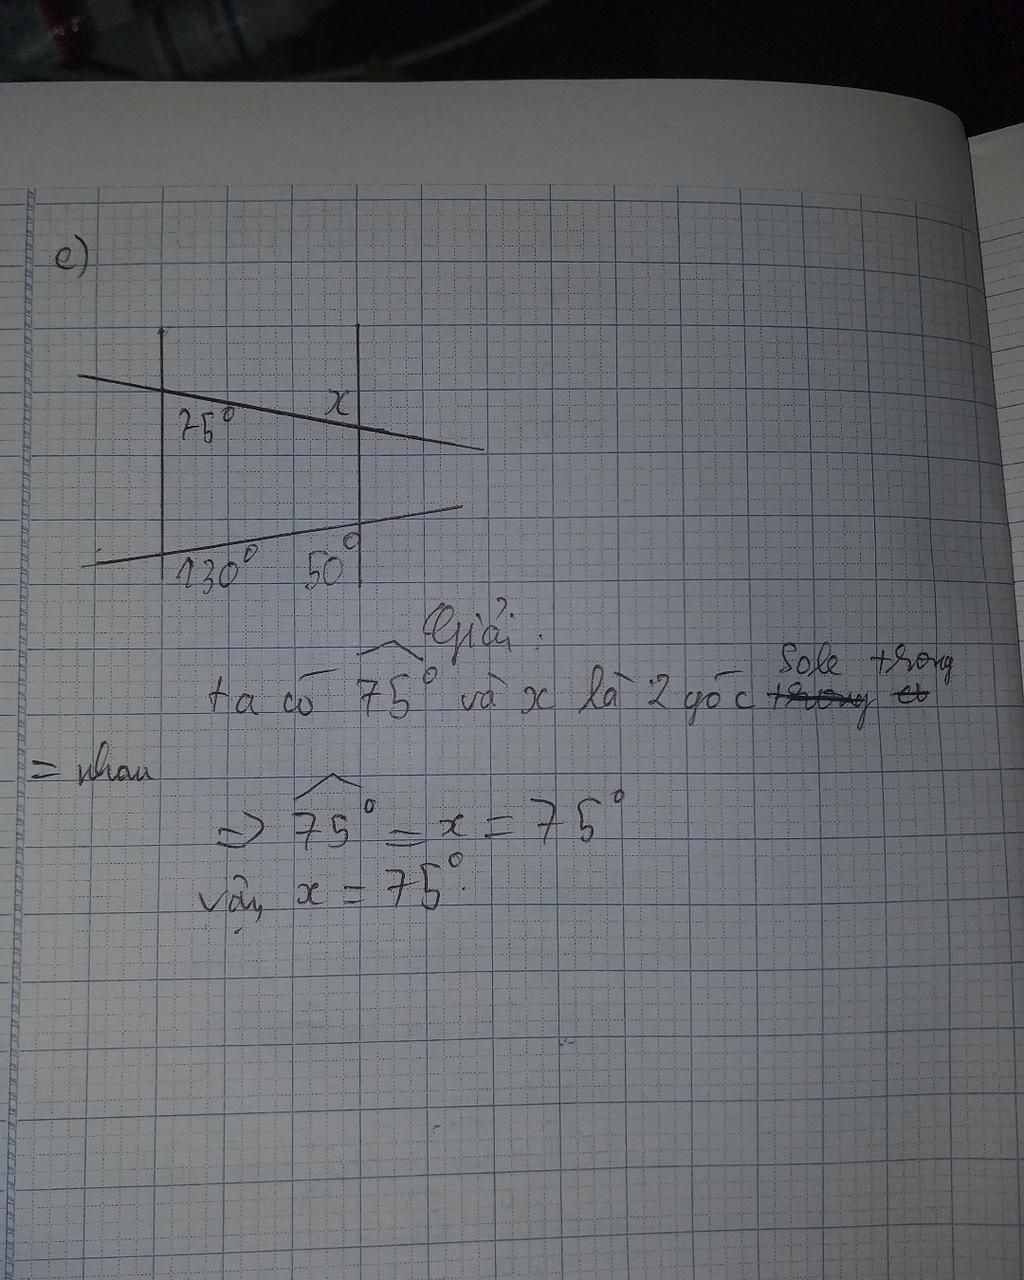 e)
x
75°
130° 50°
Giải:
ta có 75° và x là 2 góc sole trong
= nhau
=> 75° = x = 75°
vậy x = 75°.